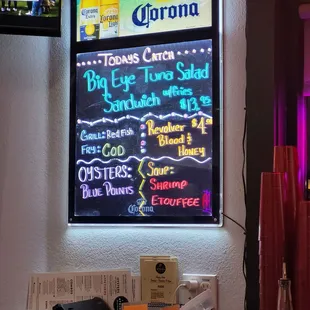 Corona
TODAYS CATCH
Big Eye Tuna Salad
Sandwich w/Fries
$13.95
GRILL: Red Fish
FRY: COD
Revolver $4
Blood &
Honey
OYSTERS:
BLUE POINTS
SOUP:
SHRIMP
ETOUFFEE
Corona